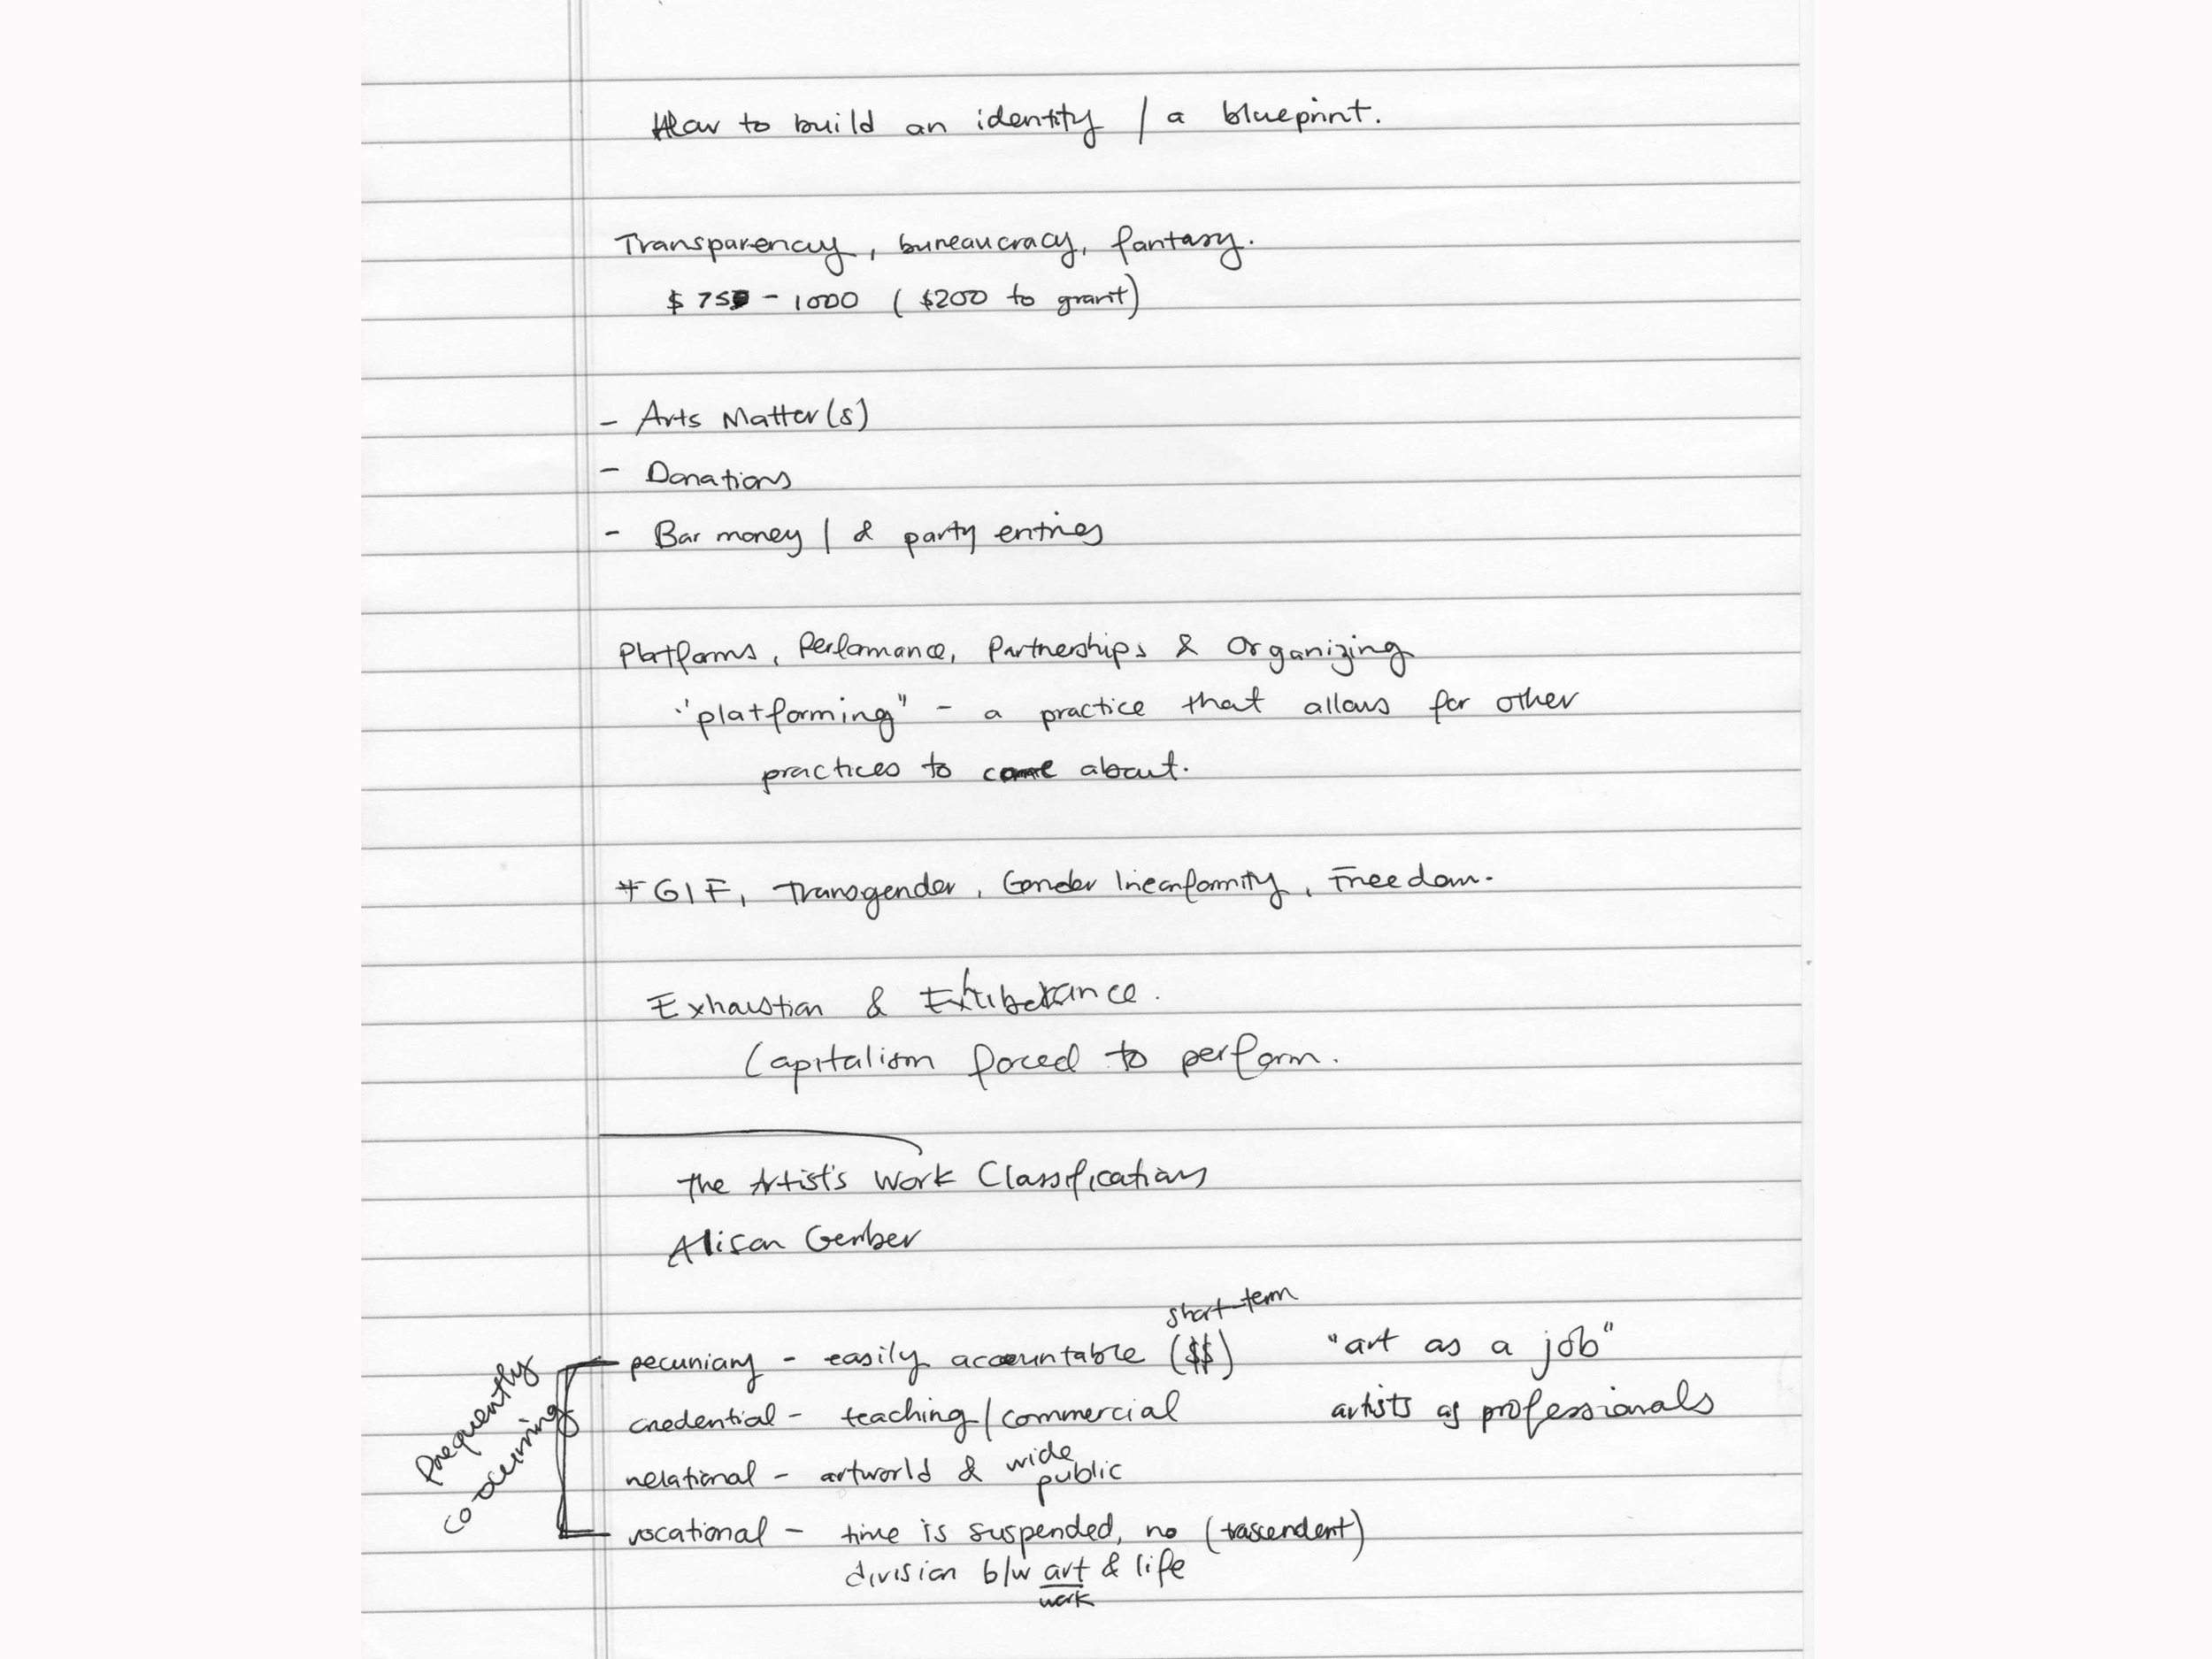 How to build an identity / a blueprint.
Transparency, bureaucracy, fantasy.
$ 750 - 1000 ( $200 to grant)
- Arts Matter(s)
- Donations
- Bar money | & party entries
Platforms, Performance, Partnerships & Organizing
"platforming" - a practice that allows for other
practices to come about.
GIF, Transgender, Gender Inconformity, Freedom.
Exhaustion & Exhuberance.
Capitalism forced to perform.
The Artist's Work Classifications
Alison Gerber
short-term
pecuniary - easily accountable ($$) "art as a job"
credential - teaching/commercial artists as professionals
relational - artworld & wide public
vocational - time is suspended, no (trascendent)
division b/w art & life
work
frequently
co-occurring